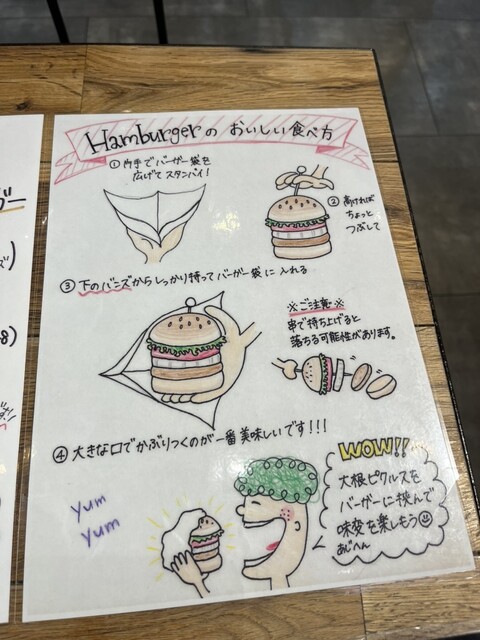 Hamburgerの おいしい食べ方
①片手でバーガー袋を
広げてスタンバイ!
②高ければ
ちょっと
つぶして
③下のバンズからしっかり持ってバーガー袋に入れる
※ご注意※
串で持ち上げると
落ちる可能性があります。
④大きな口でかぶりつくのが一番美味しいです!!!
Yum
Yum
WOW!!
大根ピクルスを
バーガーに挟んで
味変を楽しもう
あじへん